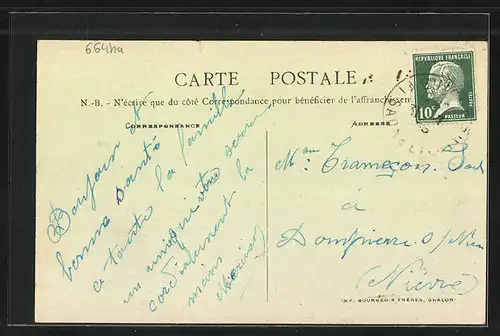 6641ha
CARTE POSTALE
N.-B. - N'écrire que du côté Correspondance pour bénéficier de l'affranchissem
CORRESPONDANCE
ADRESSE
REPUBLIQUE FRANÇAISE
10c
POSTES
PASTEUR
Bonjour et
bonne santé
a toute la famille
un ami qui vous serre
cordialement la
main
Mme Trameçon
à
Dompierre s/ Nièv
Nièvre
IMP. BOURGEOIS FRÈRES, CHALON